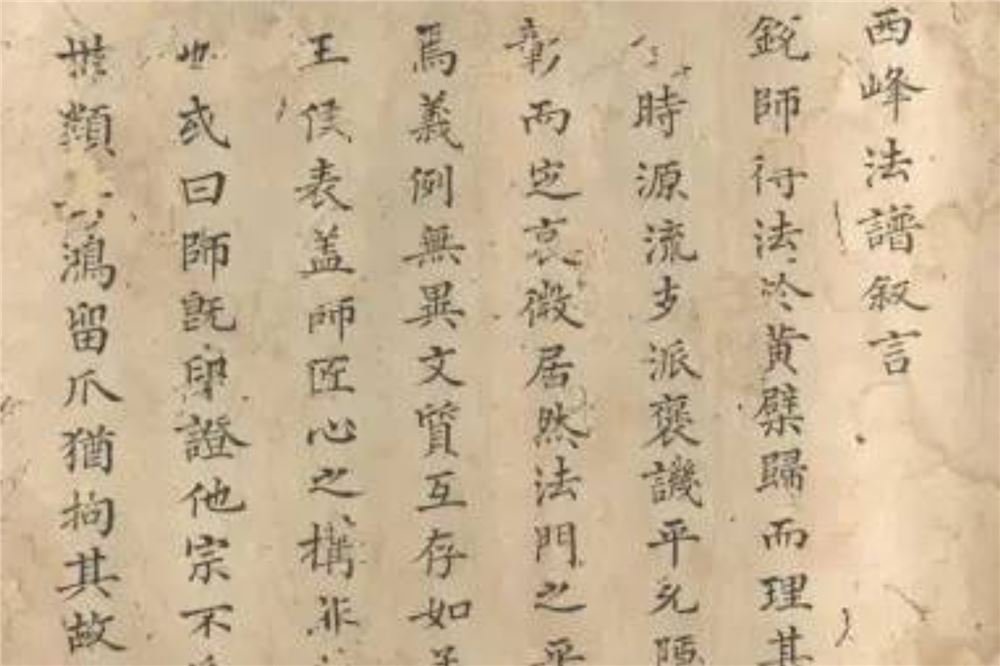 西峰法譜叙言
鋭師得法於黄檗歸而理其
時源流支派褒譏平允
彰而定哀微居然法門之
焉義例無異文質互存如
王侯表盖師匠心之構非
也或曰師既印證他宗不
類鴻留爪猶拘其故